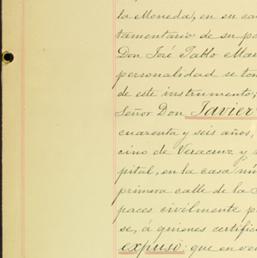 la Moneda), en su ca
tamentario de su pa
Don José Pablo Ma
personalidad se to
de este instrumento;
Señor Don Javier
cuarenta y seis años,
cino de Veracruz y
pital, en la casa nú
primera calle de la
paces civilmente p
se, á quienes certifi
expuso: que en vo